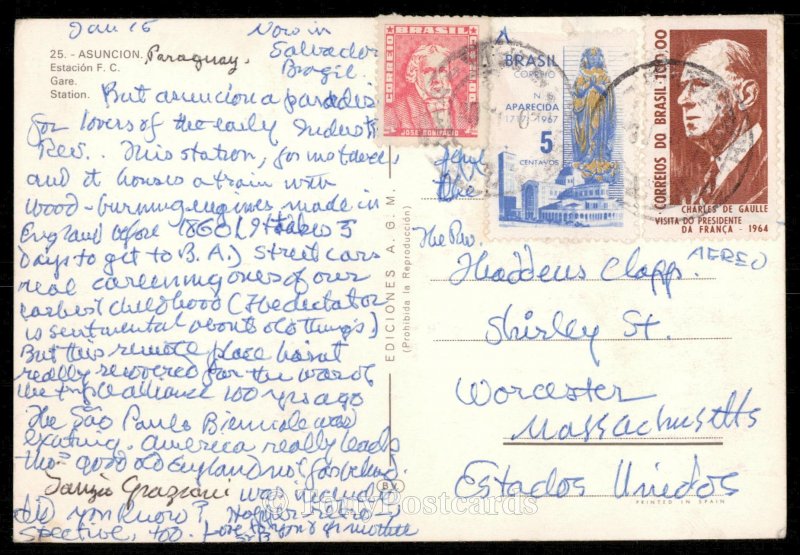 Jan 15
Now in
Salvador
Brazil
25. - ASUNCION. Paraguay.
Estación F. C.
Gare.
Station.
But asuncion a paradise
for lovers of the early Industl
Rev.. This station,
and it houses a train with
wood-burning engines made in
England before 1860 (it takes 3
Days to get to B.A.) Street cars
real careening ones of our
earliest childhood (The dictator
is sentimental about old things)
But this remote place hasnt
really recovered for the war of
the triple alliance 100 yrs ago
The São Paulo Biennale was
exciting. America really leads
tho' good old England not far behind.
was included
did you know? Hopper retro-
spective, too. Love to you & yr mother
EDICIONES A. G. M.
(Prohibida la Reproducción)
BV
CORREIO BRASIL
JOSÉ BONIFACIO
BRASIL
CORREIO
N. S.
APARECIDA
1717-1967
5
CENTAVOS
CORREIOS DO BRASIL 100,00
CHARLES DE GAULLE
VISITA DO PRESIDENTE
DA FRANÇA - 1964
AEREO
The Rev.
Thaddeus Clapp
Shirley St.
Worcester
Massachusetts
Estados Unidos
PRINTED IN SPAIN
© HollyPostcards